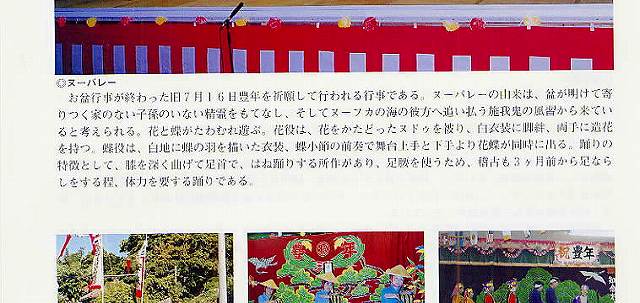 ◎ヌーバレー
お盆行事が終わった旧7月16日豊年を祈願して行われる行事である。ヌーバレーの由来は、盆が明けて寄
りつく家のない子孫のいない精霊をもてなし、そしてヌーフカの海の彼方へ追い払う施我鬼の風習から来てい
ると考えられる。花と蝶がたわむれ遊ぶ。花役は、花をかたどったヌドゥを被り、白衣装に脚絆、両手に造花
を持つ。蝶役は、白地に蝶の羽を描いた衣装、蝶小節の前奏で舞台上手と下手より花蝶が同時に出る。踊りの
特徴として、膝を深く曲げて足首で、はね踊りする所作があり、足腰を使うため、稽古も3ヶ月前から足なら
しをする程、体力を要する踊りである。
豊年
祝豊年